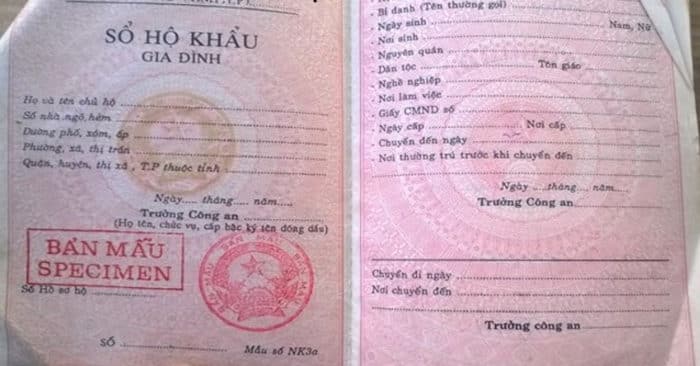 SỔ HỘ KHẨU
GIA ĐÌNH
Họ và tên chủ hộ
Số nhà, ngõ, hẻm
Đường phố, xóm, ấp
Phường, xã, thị trấn
Quận, huyện, thị xã, T.P thuộc tỉnh
Ngày..... tháng..... năm.....
Trưởng Công an
(Họ tên, chức vụ, cấp bậc ký tên đóng dấu)
BẢN MẪU
SPECIMEN
BẢN MẪU BẢN MẪU BẢN MẪU
Số Hồ sơ hộ
SỐ
Mẫu số NK3a
Bí danh (Tên thường gọi)
Ngày sinh Nam, Nữ
Nơi sinh
Nguyên quán
Dân tộc Tôn giáo
Nghề nghiệp
Nơi làm việc
Giấy CMND số
Ngày cấp Nơi cấp
Chuyển đến ngày
Nơi thường trú trước khi chuyển đến
Ngày.....tháng..... năm.....
Trưởng Công an
Chuyển đi ngày
Nơi chuyển đến
Trưởng công an